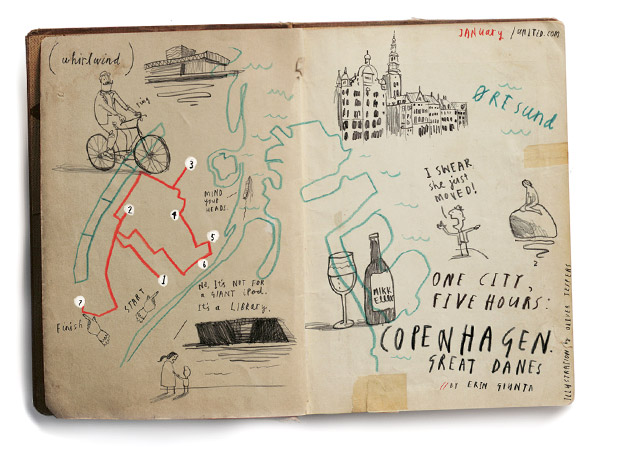 (whirlwind)
ring
3
MIND
YOUR
HEAD!
2
4
5
6
1
START
7
Finish
NO, It's NOT FOR
a GIANT iPod.
It's a Library.
JANUARY / UNITED.COM
ØRESund
I SWEAR
she just
MOVED!
2
MIKK
ELLER
ONE CITY,
FIVE HOURS:
COPENHAGEN.
GREAT DANES
//BY ERIN GIUNTA